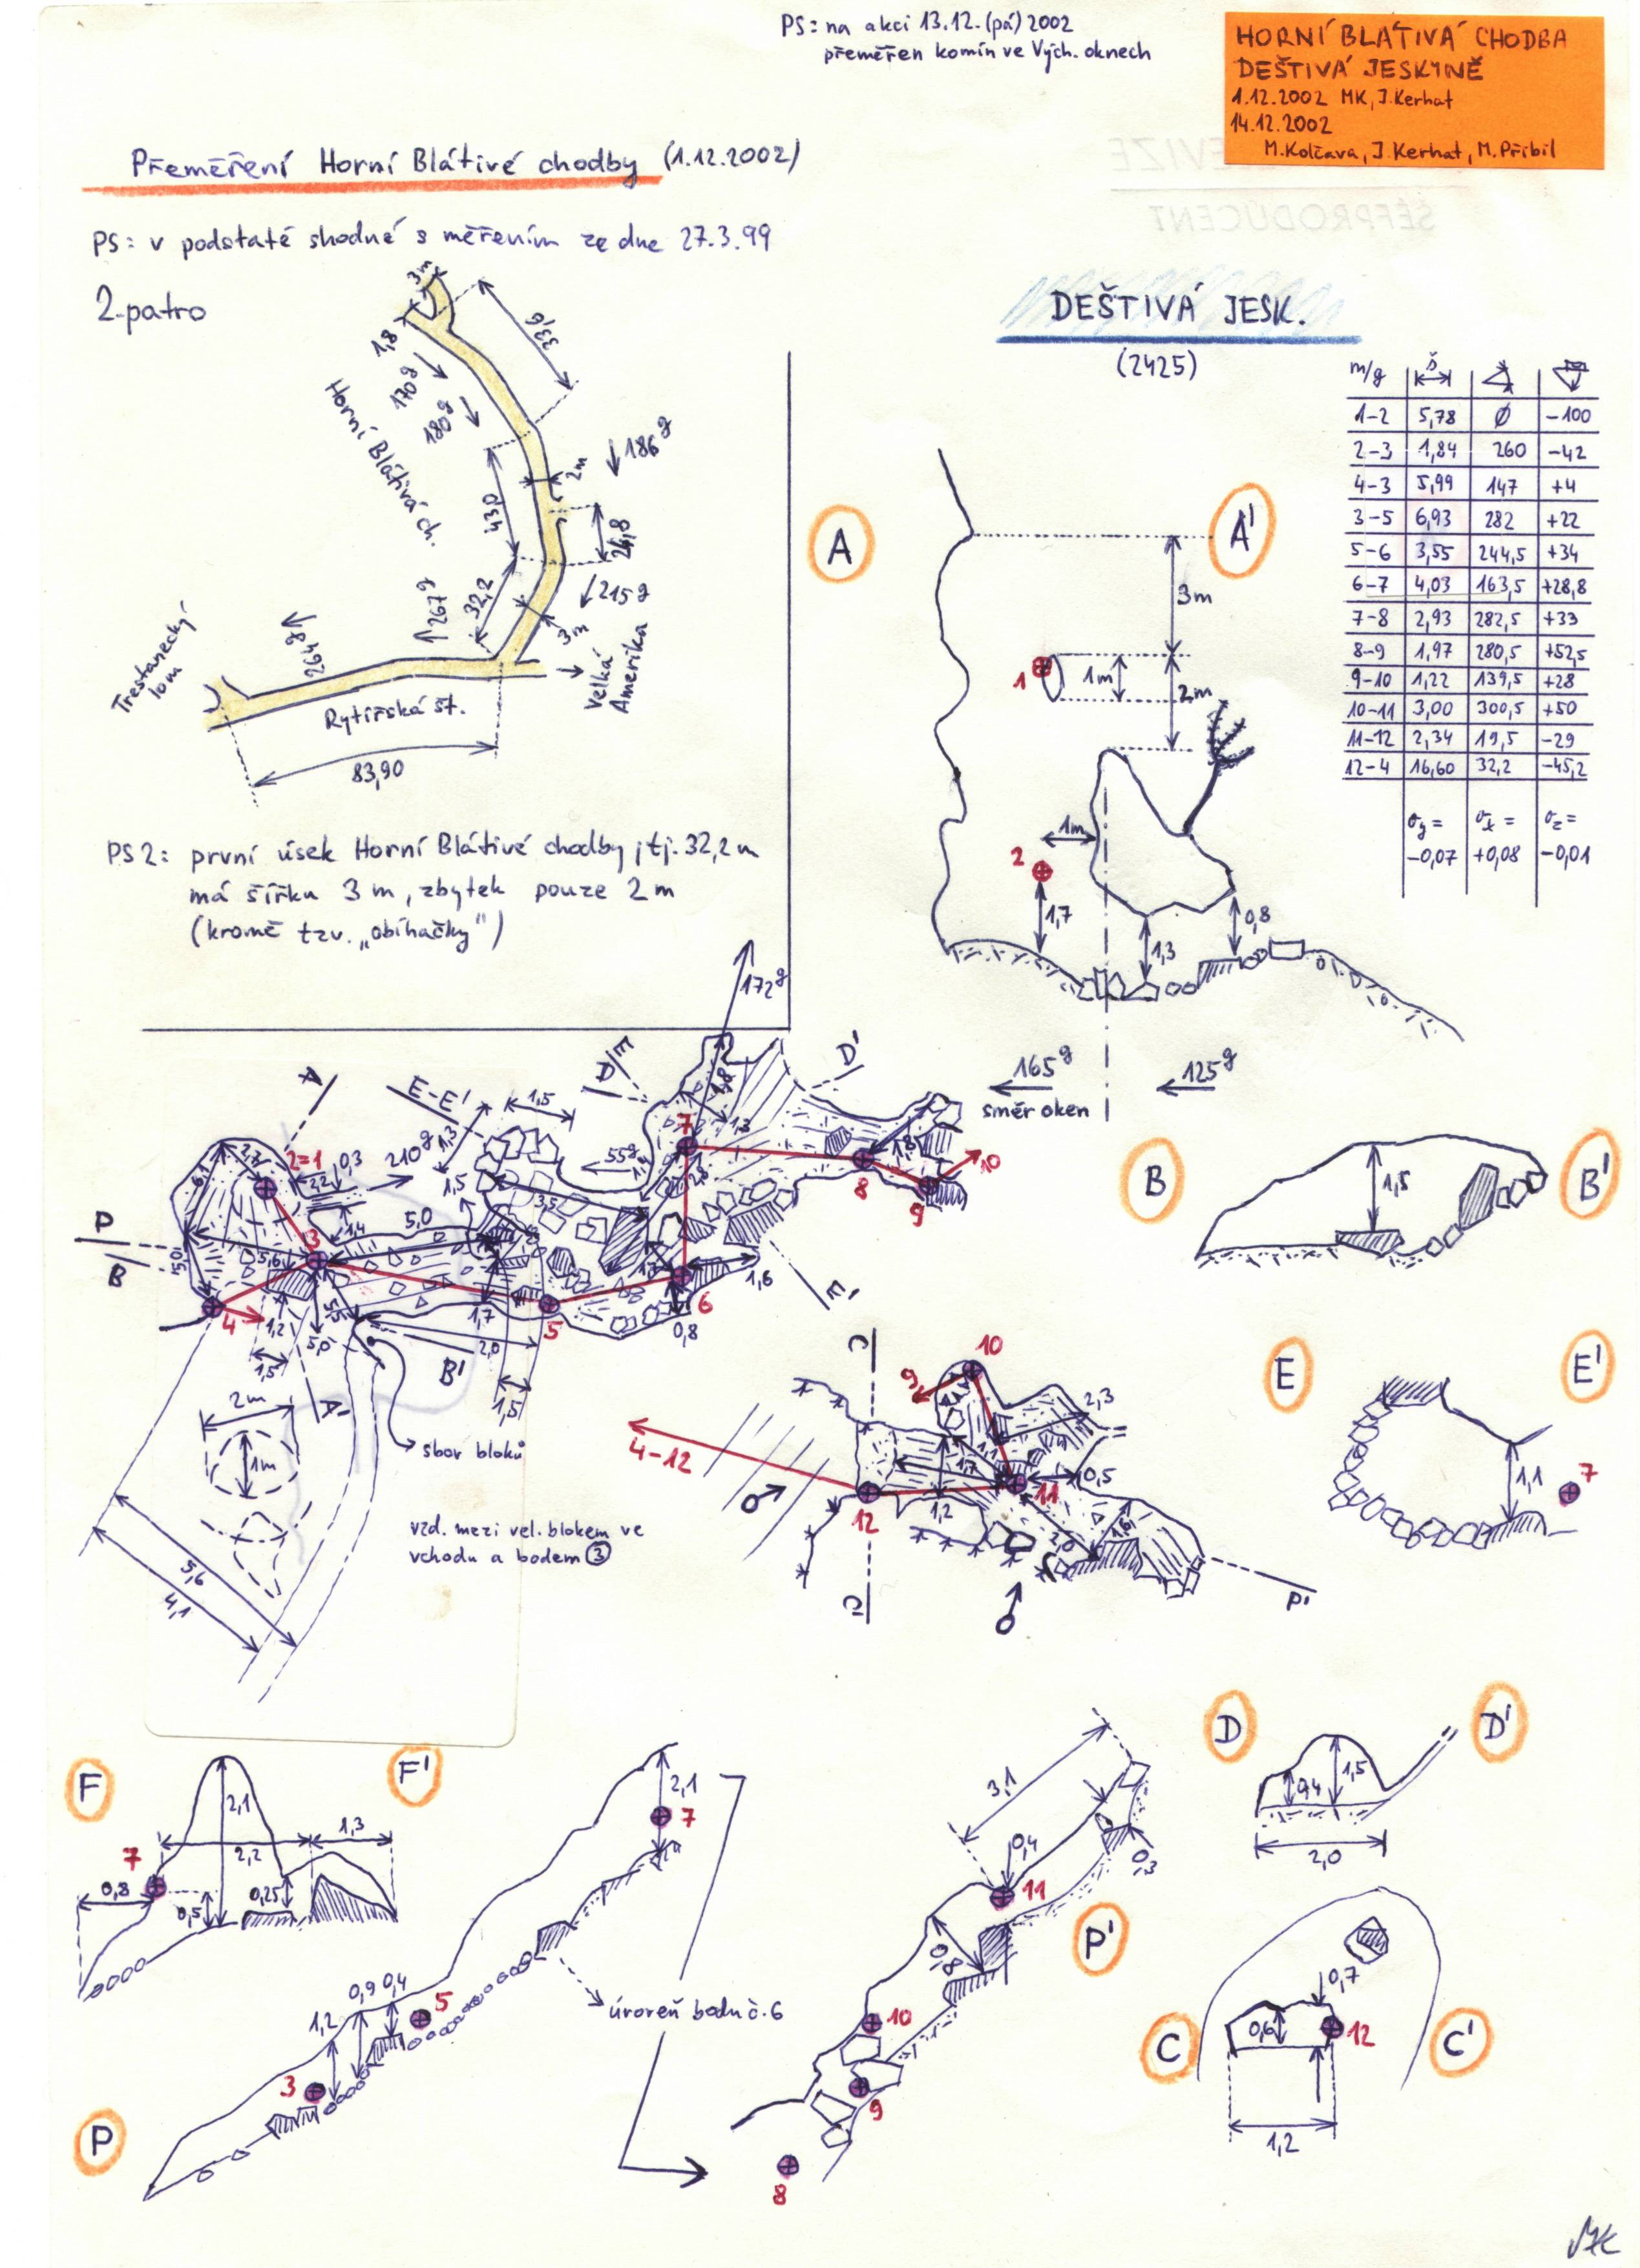 PS: na akci 13.12.(pá) 2002
přeměřen komín ve Vých. oknech
HORNÍ BLÁTIVÁ CHODBA
DEŠTIVÁ JESKYNĚ
1.12.2002 MK, J.Kerhat
14.12.2002
M.Kolčava, J.Kerhat, M.Přibil
Přeměření Horní Blátivé chodby (1.12.2002)
PS: v podstatě shodné s měřením ze dne 27.3.99
2.patro
3m
33,6
1,8
170g
180g
Horní Blátivá ch.
186g
2m
43,0
24,8
32,2
215g
267g
3m
Trestanecký lom
294,8g
Rytířská št.
Velká Amerika
83,90
PS2: první úsek Horní Blátivé chodby, tj. 32,2 m
má šířku 3 m, zbytek pouze 2 m
(kromě tzv. „obíhačky")
DEŠTIVÁ JESK.
(2425)
m/g š
1-2 5,78 Ø -100
2-3 1,84 260 -42
4-3 5,99 147 +4
3-5 6,93 282 +22
5-6 3,55 244,5 +34
6-7 4,03 163,5 +28,8
7-8 2,93 282,5 +33
8-9 1,97 280,5 +52,5
9-10 1,22 139,5 +28
10-11 3,00 300,5 +50
11-12 2,34 19,5 -29
12-4 16,60 32,2 -45,2
σy = σx = σz =
-0,07 +0,08 -0,01
A A'
3m
1 1m
2m
1m
2
1,7
1,3
0,8
165g 125g
směr oken
172g
A
E-E'
1,5
D/E
D'
1,8
1,3
7
2=1
0,3
210g
1,3
55g
2,2
1,5
3,5
1,8
10
8
9
P
B
1,4
5,0
3
5,6
4
1,2
5,0
1,5
1,7
5
6
1,6
0,8
2,0
B'
E'
1,5
A'
2m
1m
sbor bloků
5,6
4,1
vzd. mezi vel. blokem ve
vchodu a bodem ③
B B'
1,5
C
10
9
2,3
4-12
1,1
1,7
0,5
12
1,2
11
2,0
1,6
C'
P'
E E'
1,1
7
F F'
2,1
1,3
2,2
7
0,8
0,5
0,25
2,1
7
0,9 0,4
1,2
5
3
P
úroveň bodu č.6
3,1
0,4
11
0,3
P'
0,8
10
9
8
D D'
0,4
1,5
2,0
0,7
C C'
0,6
12
1,2
MK